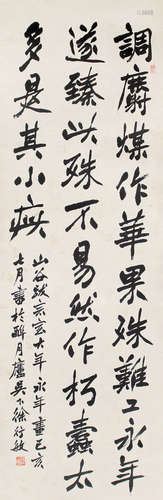 調麝煤作華果殊難工永年
遂臻此殊不易然作朽蠹太
多是其小疵
山谷跋宗室大年永年畫己亥
七月書於醉月廬吳下徐敏